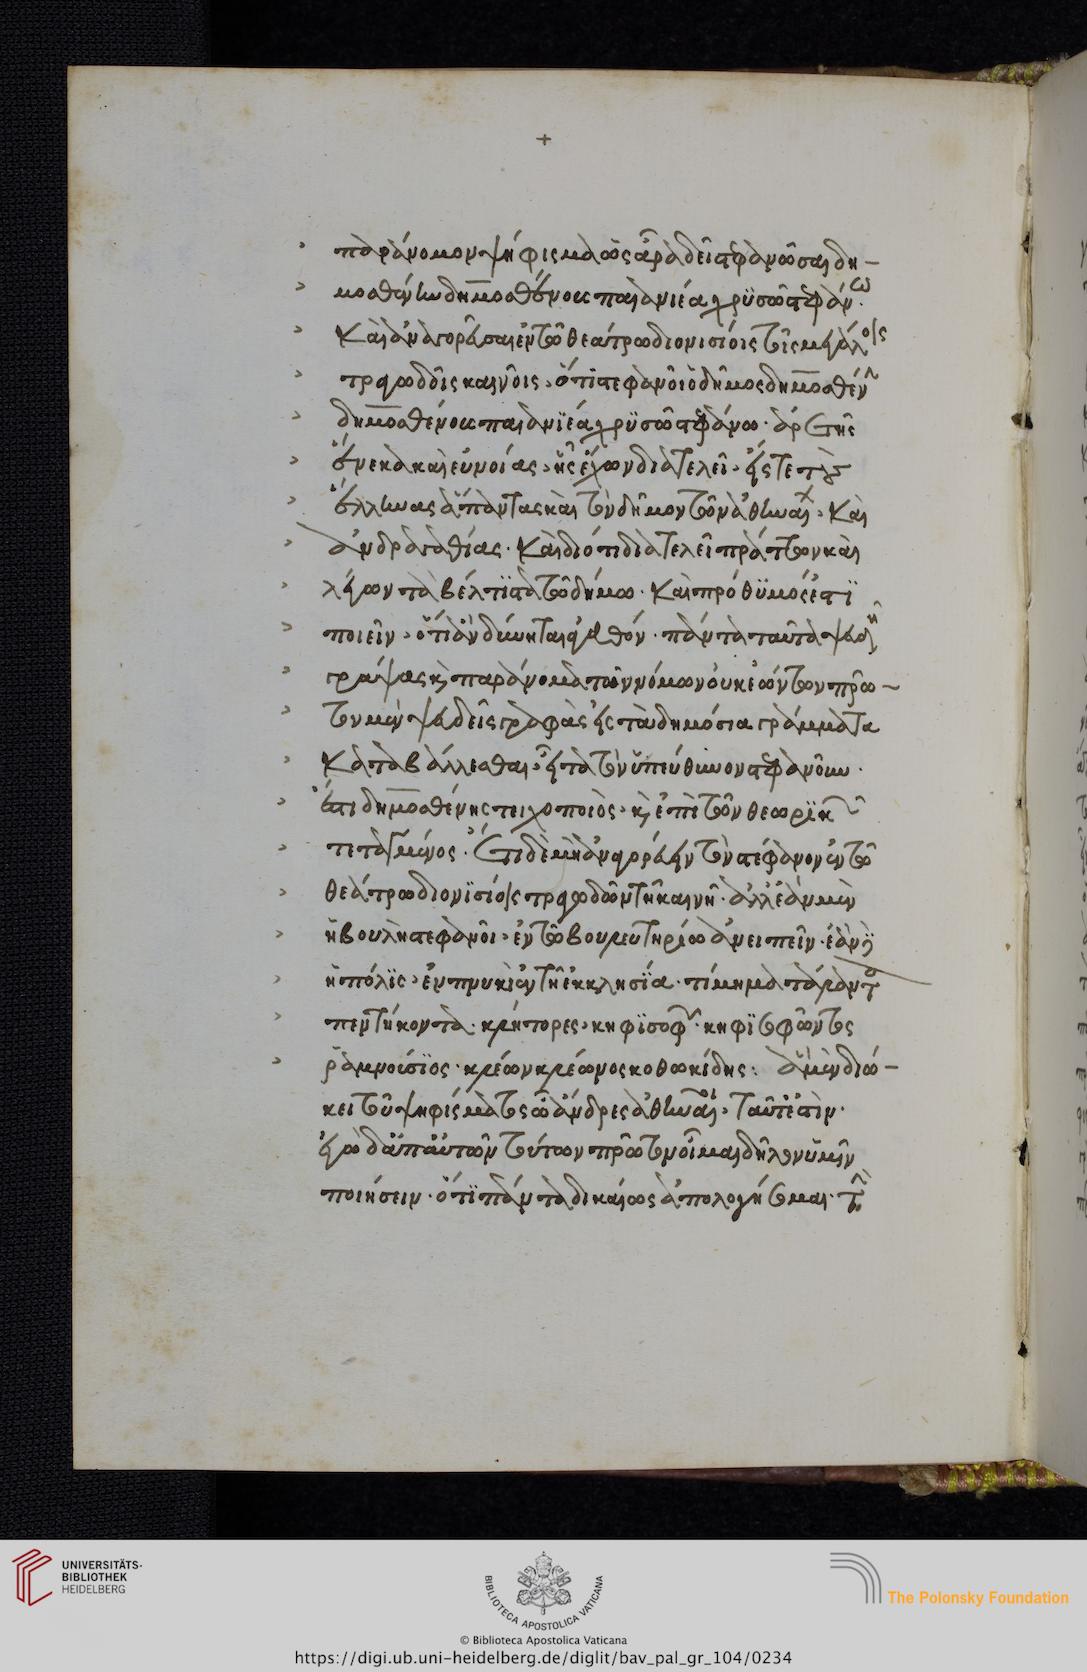 +
παράνομον ψήφισμα ὡς ἄρα δεῖ στεφανῶσαι δη-
μοσθένην δημοσθένους παιανιέα χρυσῶ στεφάνω.
καὶ ἀναγορεῦσαι ἐν τῶ θεάτρω διονυσίοις τοῖς μεγάλοις
τραγωδοῖς καινοῖς, ὅτι στεφανοῖ ὁ δῆμος δημοσθένην
δημοσθένους παιανιέα χρυσῶ στεφάνω. ἀρετῆς
ἕνεκα καὶ εὐνοίας, ἧς ἔχων διατελεῖ, εἴς τε τοὺς
ἕλληνας ἅπαντας καὶ τὸν δῆμον τὸν ἀθηναίων, καὶ
ἀνδραγαθίας. καὶ διότι διατελεῖ πράττων καὶ
λέγων τὰ βέλτιστα τῶ δήμω. καὶ πρόθυμός ἐστι
ποιεῖν, ὅτι ἂν δύνηται ἀγαθόν. πάντα ταῦτα ψευδῆ
γράψας καὶ παράνομα τῶν νόμων οὐκ ἐώντων πρῶ-
τον μὲν ψευδεῖς γραφὰς εἰς τὰ δημόσια γράμματα
καταβάλλεσθαι, εἶτα τὸν ὑπεύθυνον στεφανοῦν.
ἔστι δὲ δημοσθένης τειχοποιὸς, καὶ ἐπὶ τῶν θεωρικῶν
τεταγμένος. ἔτι δὲ μὴ ἀναγορεύειν τὸν στέφανον ἐν τῶ
θεάτρω διονυσίοις τραγωδῶν τῆ καινῆ. ἀλλ' ἐὰν μὲν
ἡ βουλὴ στεφανοῖ, ἐν τῶ βουλευτηρίω ἀνειπεῖν. ἐὰν δὲ
ἡ πόλις, ἐν πνυκὶ ἐν τῆ ἐκκλησία. τίμημα τάλαντα
πεντήκοντα. κλήτορες, κηφισοφῶν. κηφισοφῶντος
ῥαμνούσιος. κλέων κλέωνος κοθωκίδης: ἃ μὲν διώ-
κει τοῦ ψηφίσματος ὦ ἄνδρες ἀθηναῖοι, ταῦτ' ἐστὶν.
ἐγὼ δ' ἀπ' αὐτῶν τούτων πρῶτον οἶμαι δῆλον ὑμῖν
ποιήσειν. ὅτι πάντα δικαίως ἀπολογήσομαι. τὴν
UNIVERSITÄTS-
BIBLIOTHEK
HEIDELBERG
BIBLIOTECA APOSTOLICA VATICANA
The Polonsky Foundation
© Biblioteca Apostolica Vaticana
https://digi.ub.uni-heidelberg.de/diglit/bav_pal_gr_104/0234